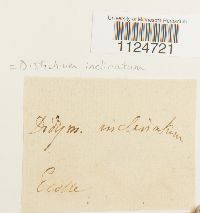 University of Minnesota Herbarium
1124721
= Distichium inclinatum
Didym. inclinatum
Ecosse